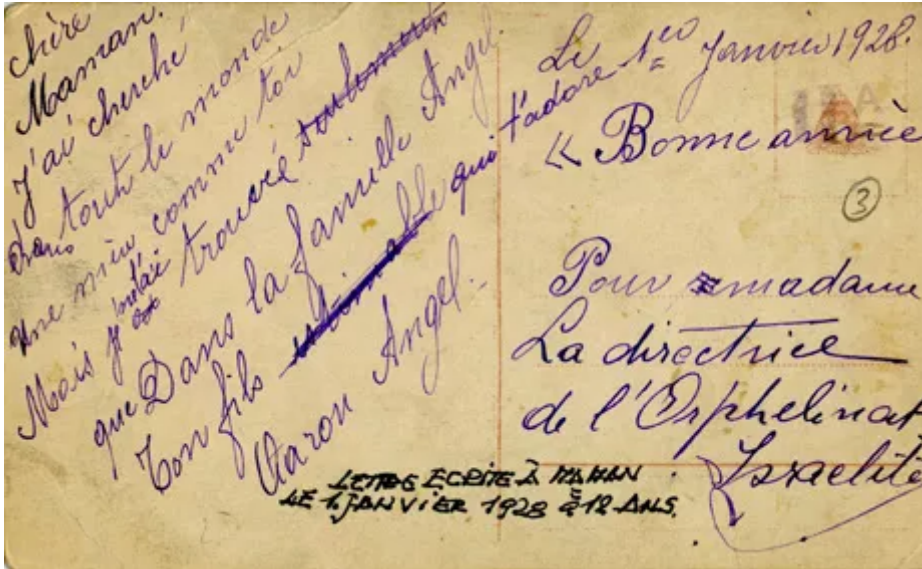 chère
Maman.
J'ai cherché
Dans tout le monde
une mère comme toi
Mais je n'ai trouvé seulement
que Dans la famille Angel
Ton fils qui t'adore
Aaron Angel.
Le 1er Janvier 1928.
« Bonne année
3
Pour madame
La directrice
de l'Orphelinat
Israelite
LETTRE ECRITE À MAMAN
LE 1. JANVIER 1928 à 12 ANS.